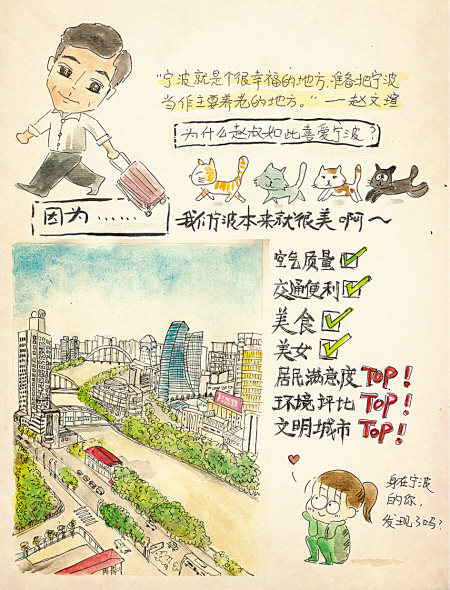 "宁波就是个很幸福的地方,准备把宁波
当作主要养老的地方。" —赵文瑄
为什么赵叔如此喜爱宁波?
因为……
我们宁波本来就很美啊~
空气质量
交通便利
美食
美女
居民满意度 TOP!
环境评比 TOP!
文明城市 TOP!
身在宁波
的你,
发现了吗?